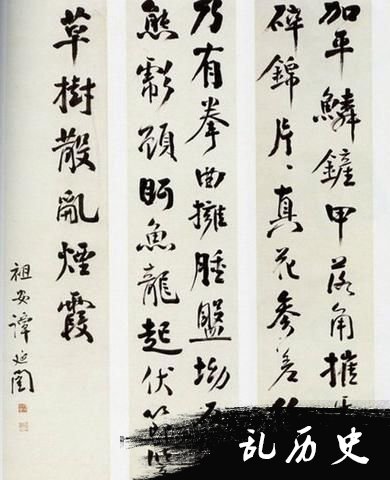 加平鱗鏟甲落角摧
碎錦片〻真花參差
乃有拳曲擁腫盤坳
熊彪顧盼魚龍起伏節
草樹散亂煙霞
祖安譚延闓
乱历史